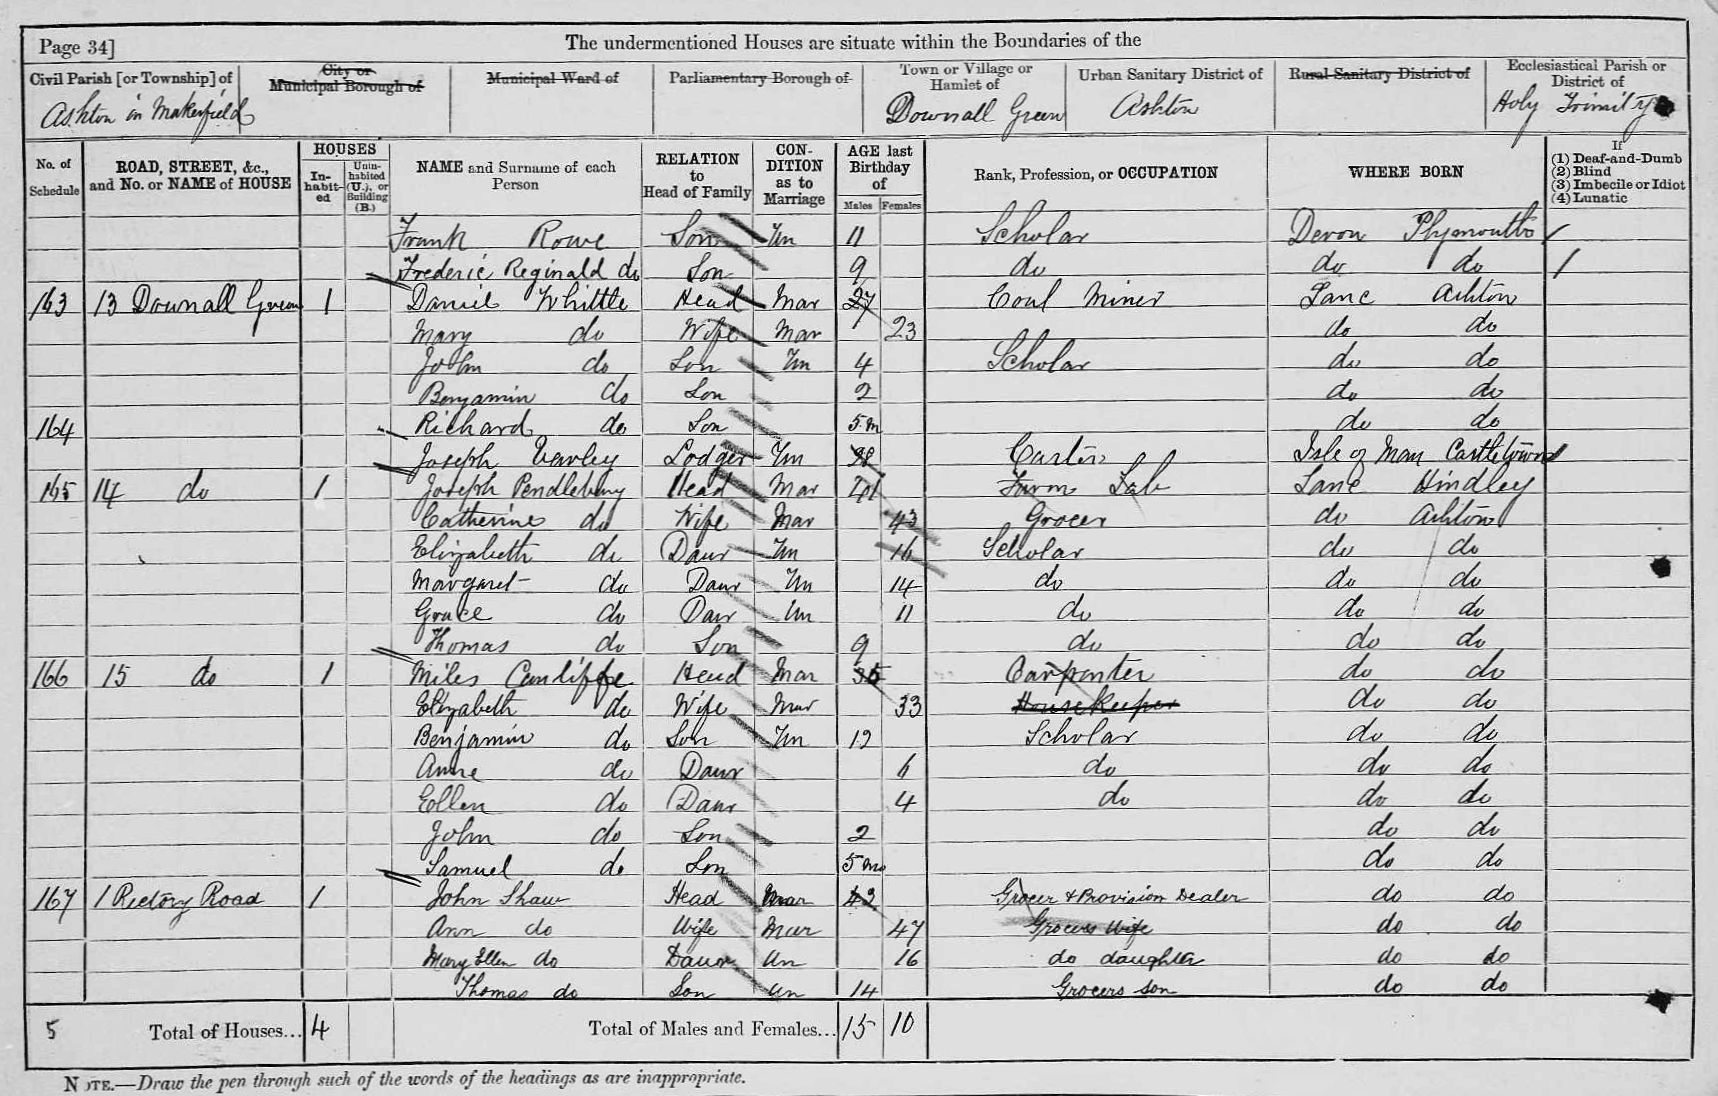 Page 34]
The undermentioned Houses are situate within the Boundaries of the
Civil Parish [or Township] of
Ashton in Makerfield
City or
Municipal Borough of
Municipal Ward of
Parliamentary Borough of
Town or Village or
Hamlet of
Downall Green
Urban Sanitary District of
Ashton
Rural Sanitary District of
Ecclesiastical Parish or
District of
Holy Trinity
No. of
Schedule
ROAD, STREET, &c.,
and No. or NAME of HOUSE
HOUSES
In-
habit-
ed
Unin-
habited
(U.), or
Building
(B.)
NAME and Surname of each
Person
RELATION
to
Head of Family
CON-
DITION
as to
Marriage
AGE last
Birthday
of
Males Females
Rank, Profession, or OCCUPATION
WHERE BORN
If
(1) Deaf-and-Dumb
(2) Blind
(3) Imbecile or Idiot
(4) Lunatic
Frank Rowe Son Un 11 Scholar Devon Plymouth
Frederic Reginald do Son 9 do do do
163 13 Downall Green 1 Daniel Whittle Head Mar 27 Coal Miner Lanc Ashton
Mary do Wife Mar 23 do do
John do Son Un 4 Scholar do do
Benjamin do Son 2 do do
164 Richard do Son 5 m do do
Joseph Lodger Un 28 Carter Isle of Man Castletown
165 14 do 1 Joseph Pendlebury Head Mar 41 Farm Lab Lanc Hindley
Catherine do Wife Mar 43 Grocer do Ashton
Elizabeth do Daur Un 16 Scholar do do
Margaret do Daur Un 14 do do do
Grace do Daur Un 11 do do do
Thomas do Son 9 do do do
166 15 do 1 Miles Cunliffe Head Mar 35 Carpenter do do
Elizabeth do Wife Mar 33 Housekeeper do do
Benjamin do Son Un 12 Scholar do do
Anne do Daur 6 do do do
Ellen do Daur 4 do do do
John do Son 2 do do
Samuel do Son 5 mo do do
167 1 Rectory Road 1 John Shaw Head Mar 43 Grocer & Provision Dealer do do
Ann do Wife Mar 47 Grocers Wife do do
Mary Ellen do Daur Un 16 do daughter do do
Thomas do Son Un 14 Grocers son do do
5 Total of Houses... 4 Total of Males and Females... 15 10
NOTE.—Draw the pen through such of the words of the headings as are inappropriate.